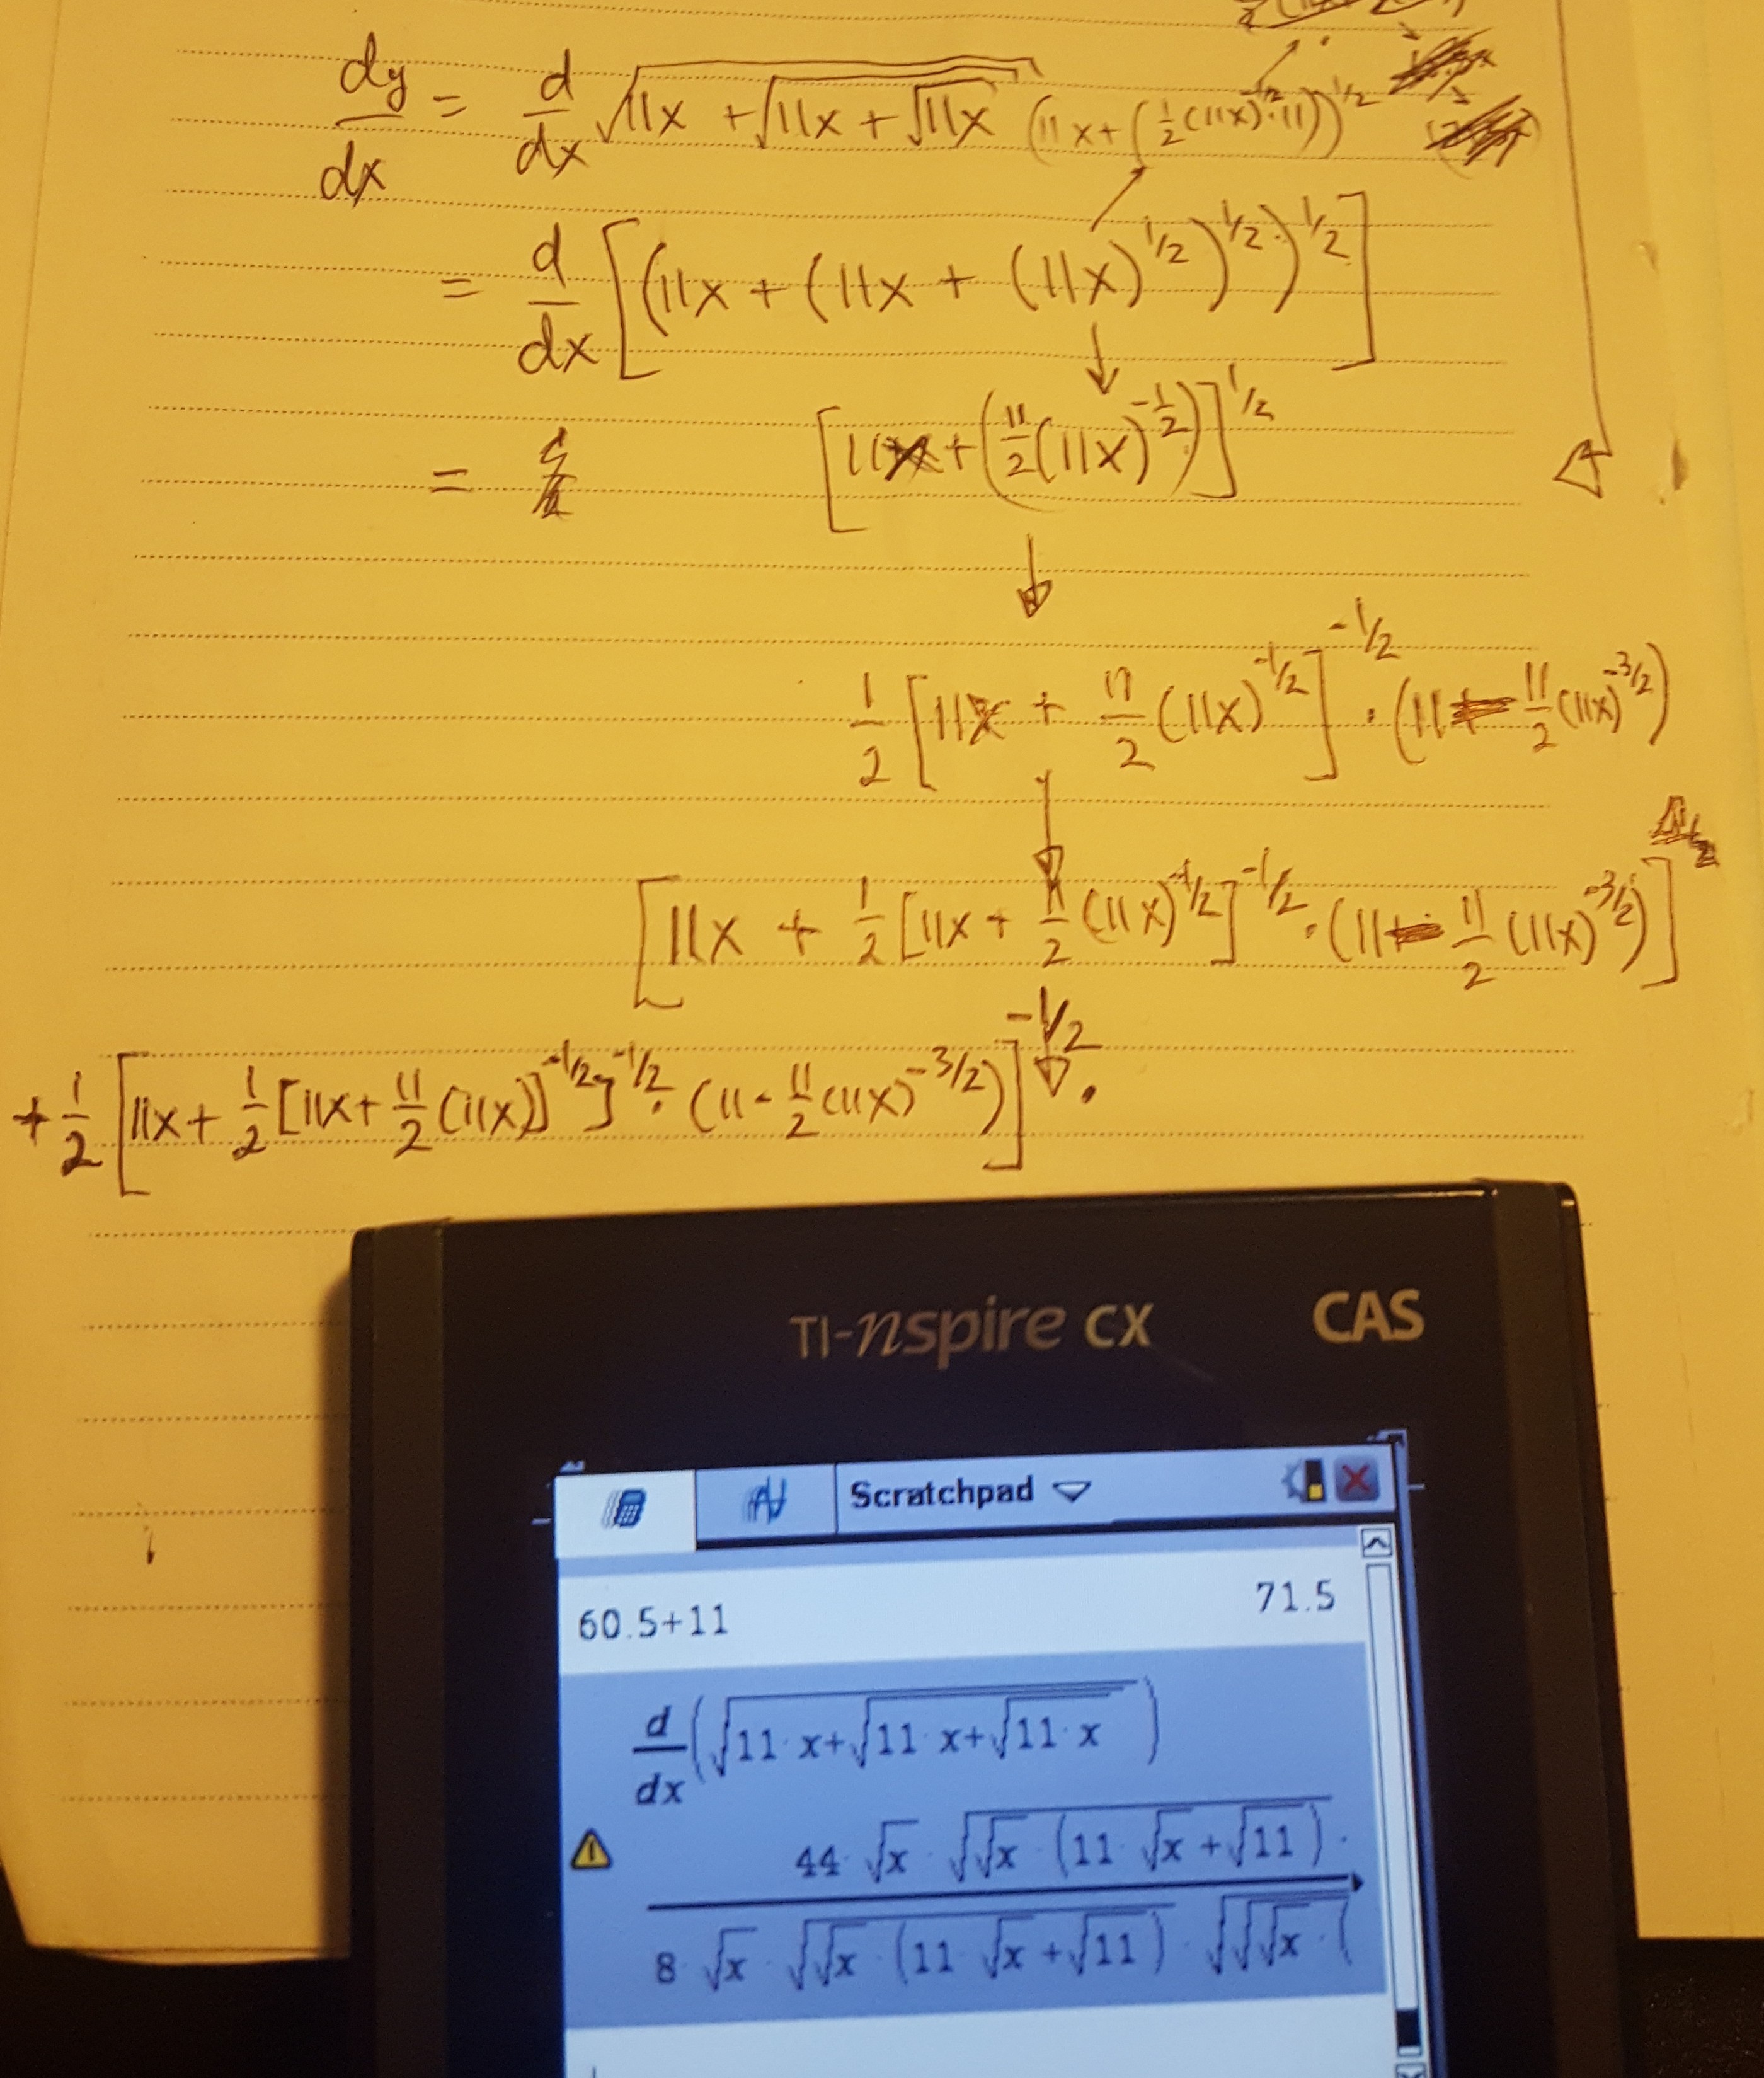 dy/dx = d/dx √(11x + √(11x + √(11x))) (11x + (1/2(11x)^-1/2 · 11))^1/2
= d/dx [(11x + (11x + (11x)^1/2)^1/2)^1/2]
= [11x + (11/2(11x)^-1/2)]^1/2
1/2 [11x + 11/2 (11x)^-1/2]^-1/2 · (11 - 11/2 (11x)^-3/2)
[11x + 1/2 [11x + 11/2 (11x)^-1/2]^-1/2 · (11 - 11/2 (11x)^-3/2)]
+ 1/2 [11x + 1/2 [11x + 11/2 (11x)]^-1/2]^-1/2 · (11 - 11/2 (11x)^-3/2)]^-1/2 ·
TI-nspire CX CAS
Scratchpad
60.5+11 71.5
d/dx(√(11·x+√(11·x+√(11·x))))
44·√x·√(√x·(11·√x+√11))·
8·√x·√(√x·(11·√x+√11))·√(√(√x·(